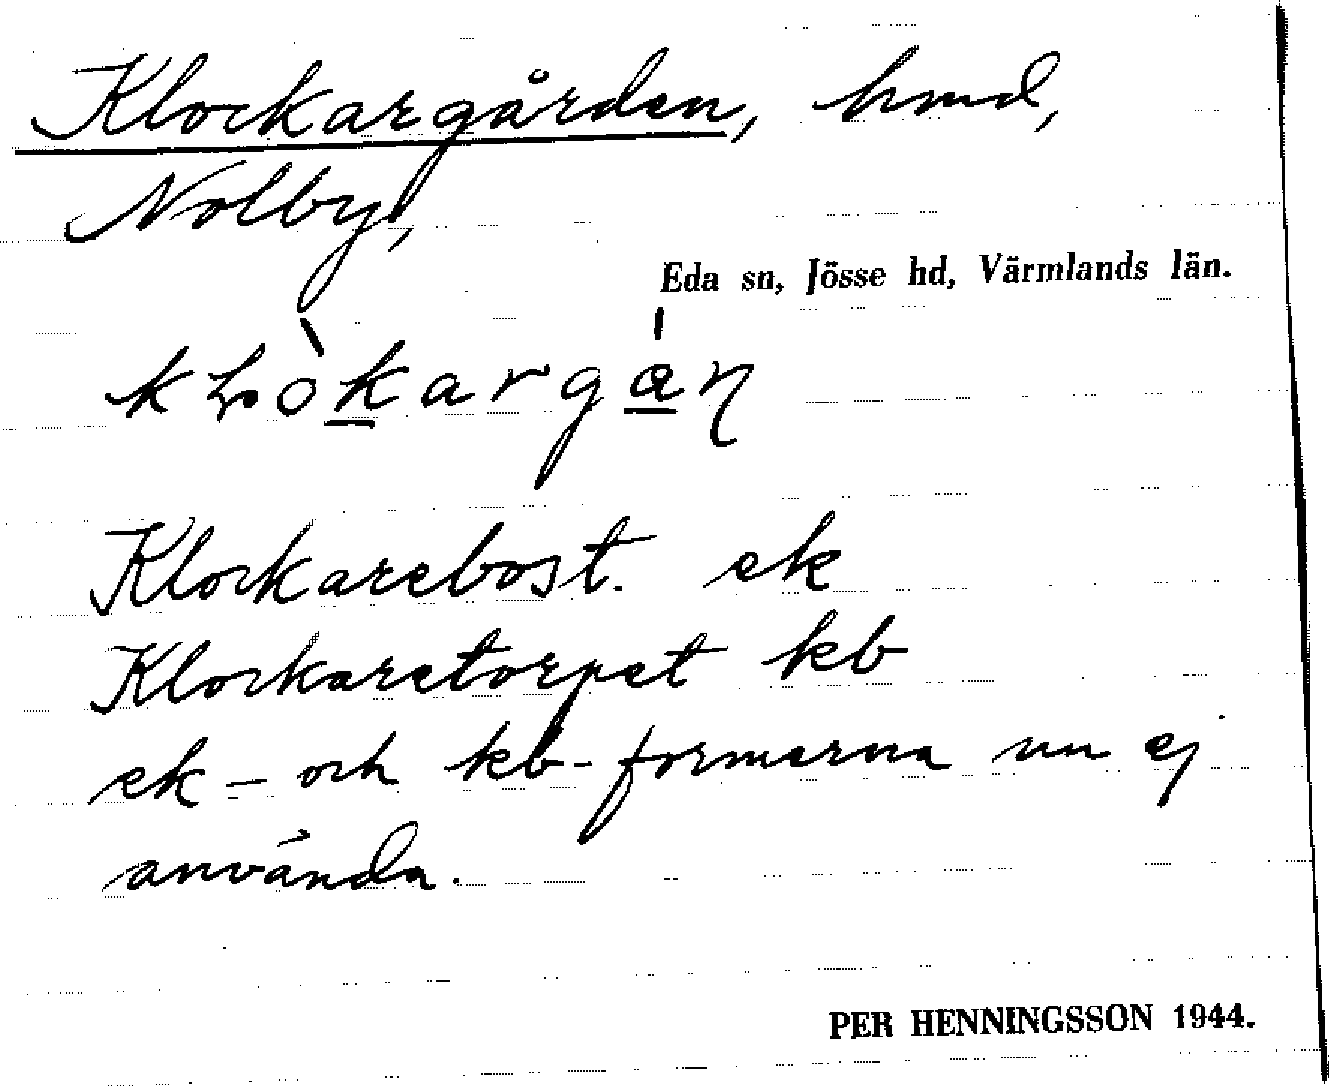 Klockargården, hmd,
Nolby,
Eda sn, Jösse hd, Värmlands län.
Klockarebost. ek
Klockaretorpet kb
ek- och kb-formerna nu ej
använda.
PER HENNINGSSON 1944.